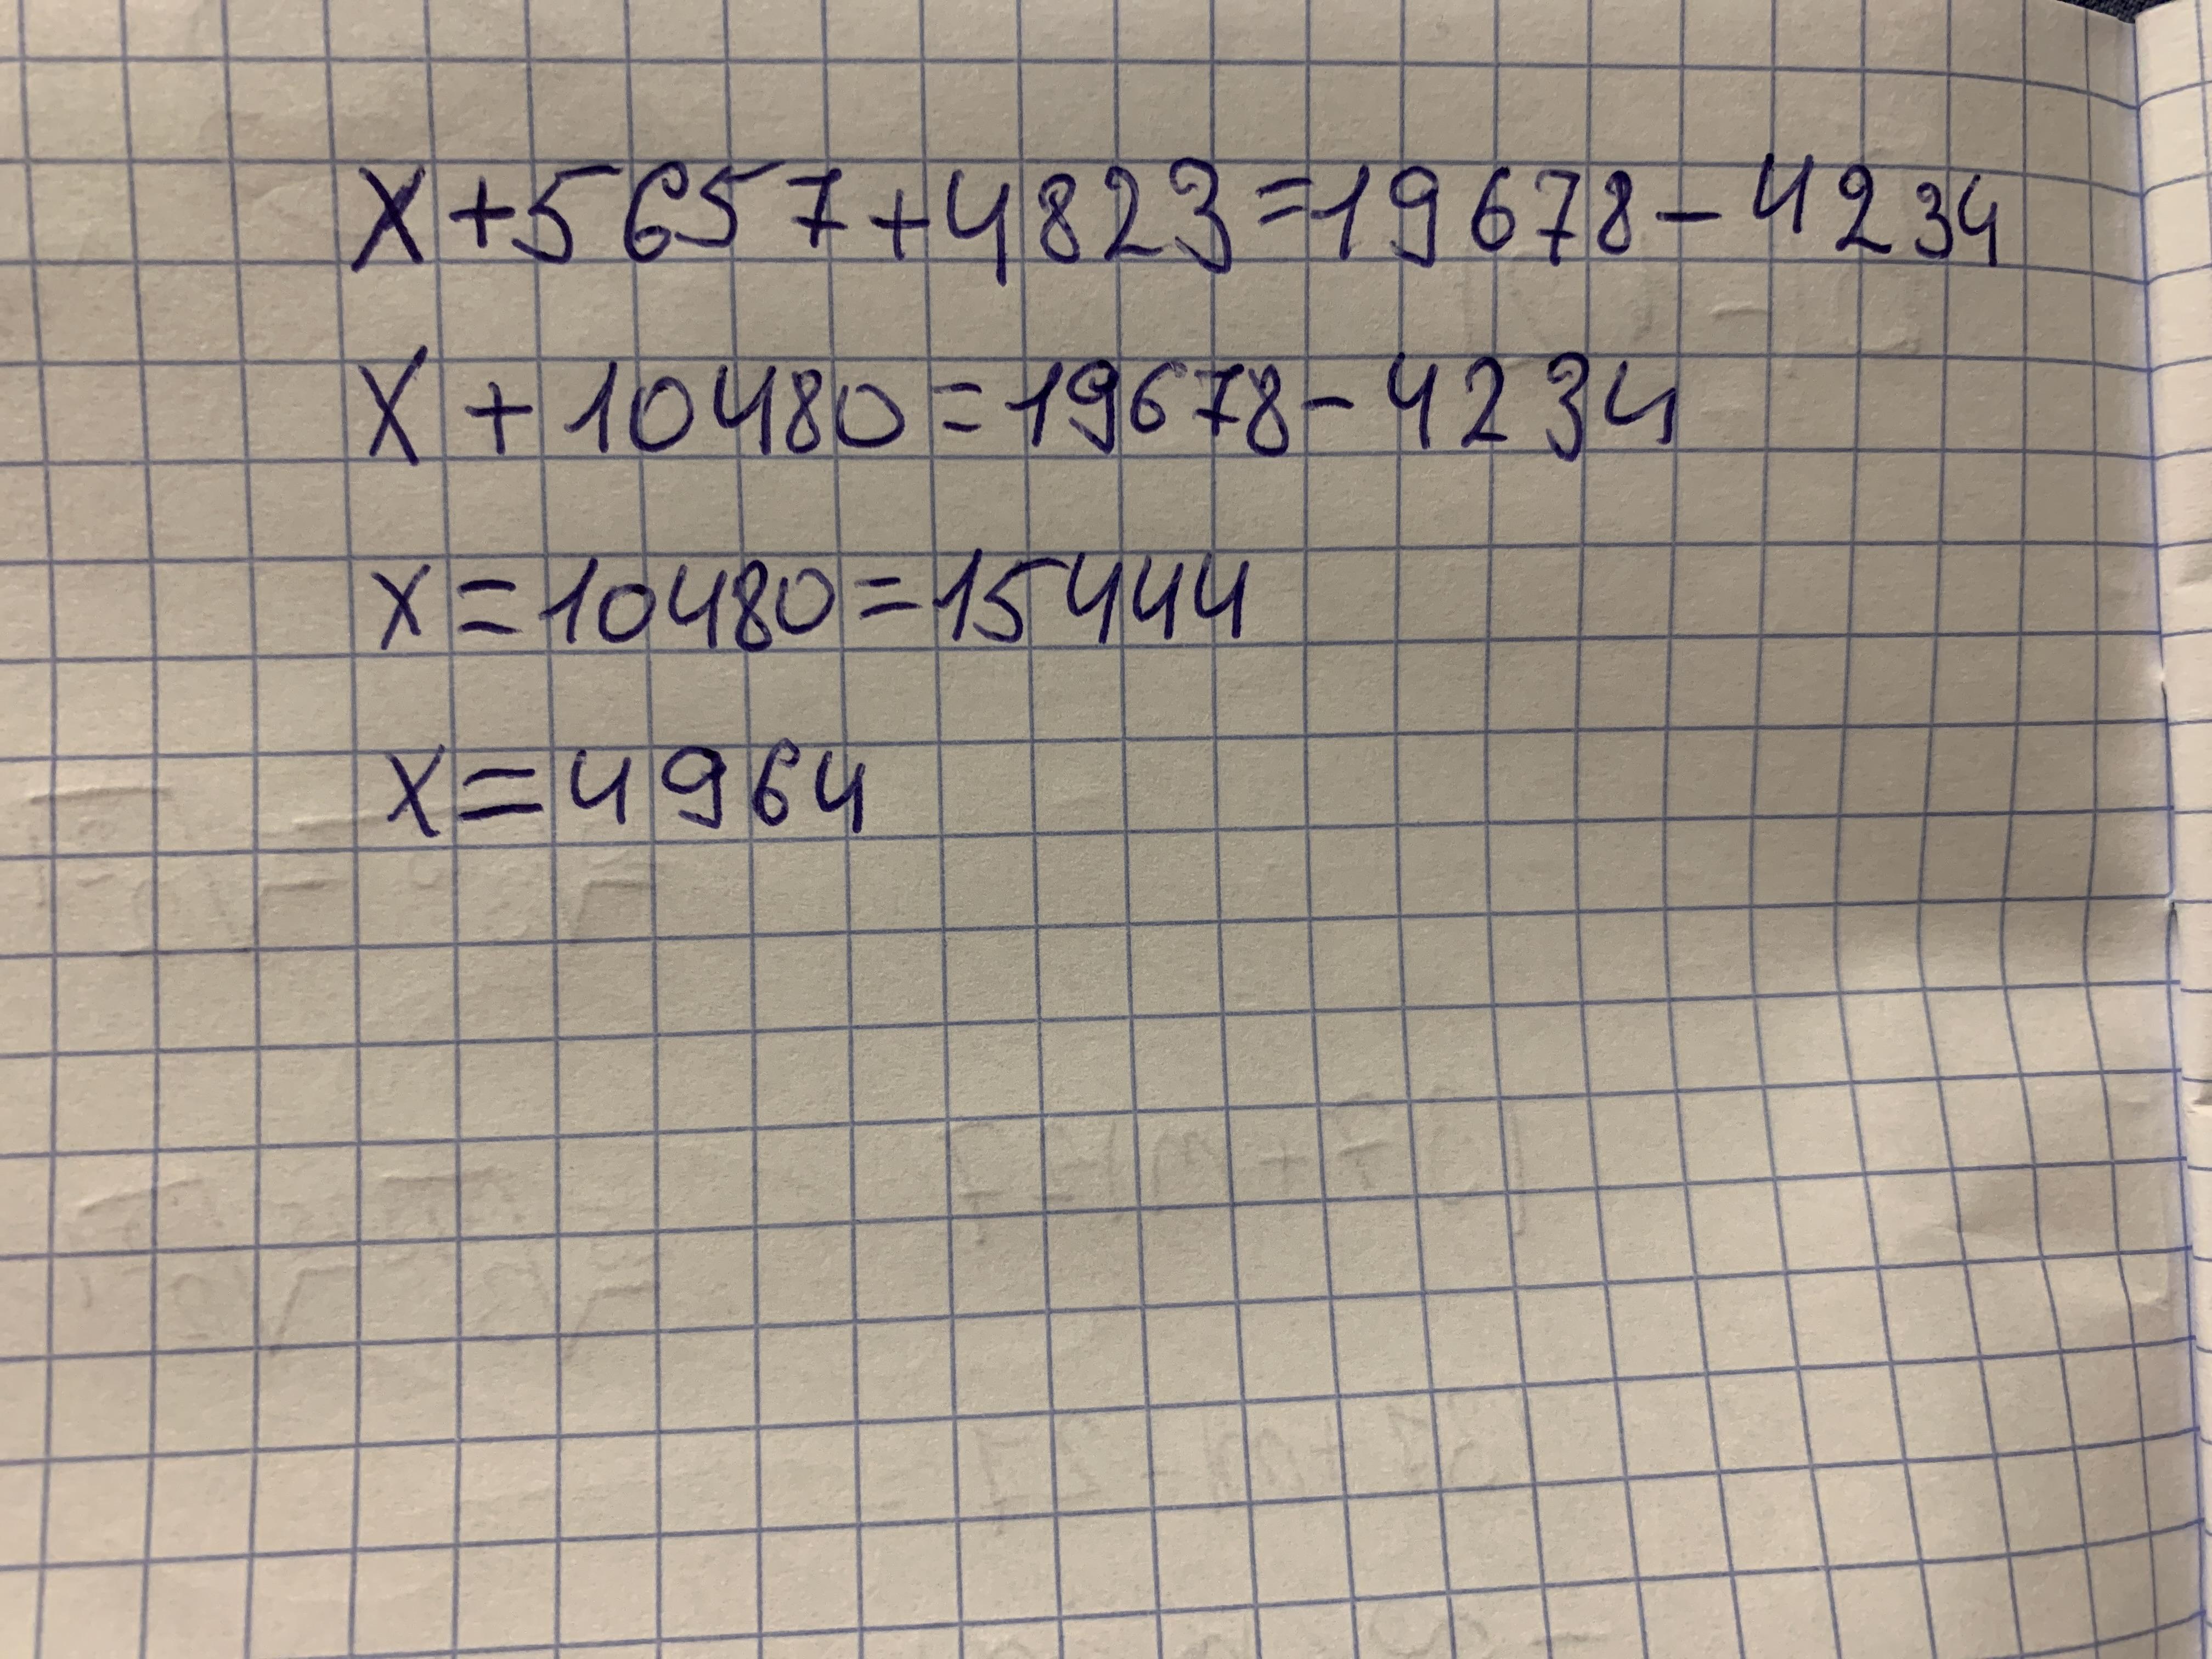 x+5657+4823=19678-4234
x+10480=19678-4234
x=10480=15444
x=4964